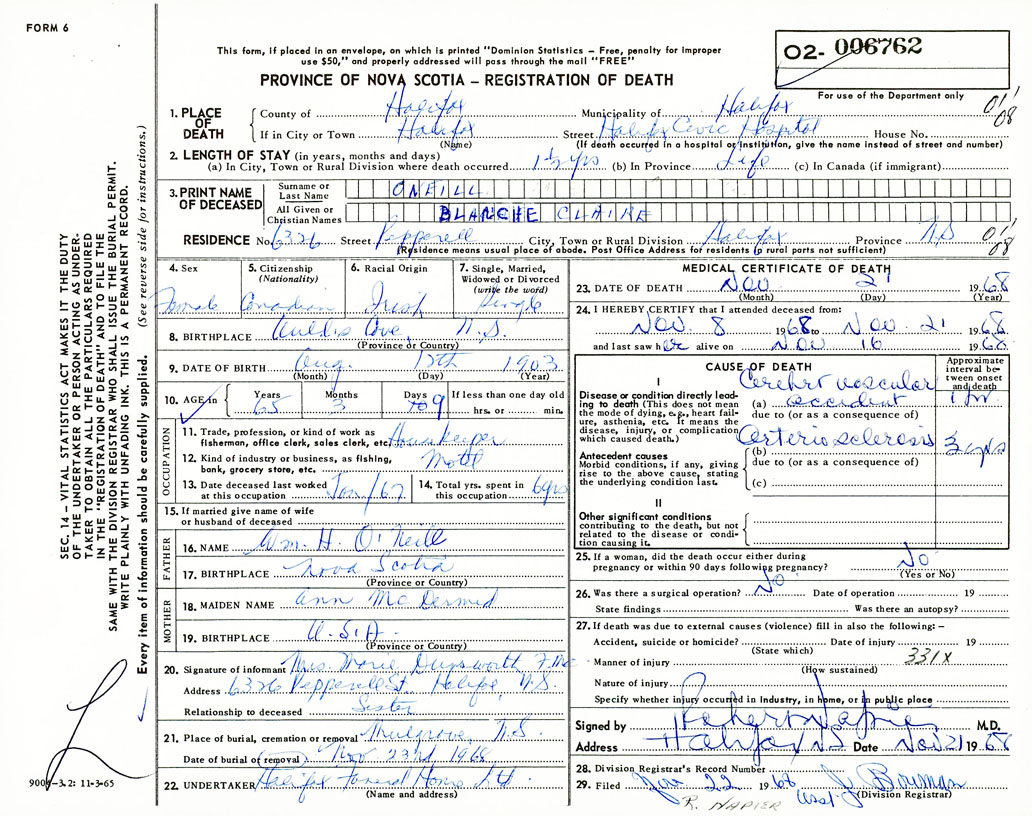 FORM 6
This form, if placed in an envelope, on which is printed "Dominion Statistics – Free, penalty for improper
use $50," and properly addressed will pass through the mail "FREE"
PROVINCE OF NOVA SCOTIA – REGISTRATION OF DEATH
O2- 006762
For use of the Department only
1. PLACE OF DEATH
County of Halifax Municipality of Halifax 01/08
If in City or Town Halifax Street Halifax Civic Hospital House No.
(Name) (If death occurred in a hospital or institution, give the name instead of street and number)
2. LENGTH OF STAY (in years, months and days)
(a) In City, Town or Rural Division where death occurred 1½ yrs (b) In Province Life (c) In Canada (if immigrant)
3. PRINT NAME OF DECEASED
Surname or Last Name ONEILL
All Given or Christian Names BLANCHE CLAIRE
RESIDENCE No. 6326 Street Pepperell City, Town or Rural Division Halifax Province NS 01/08
(Residence means usual place of abode. Post Office Address for residents in rural parts not sufficient)
4. Sex Female
5. Citizenship (Nationality) Canadian
6. Racial Origin Irish
7. Single, Married, Widowed or Divorced (write the word) Single
8. BIRTHPLACE Cove N.S.
(Province or Country)
9. DATE OF BIRTH Aug. 12th 1903
(Month) (Day) (Year)
10. AGE in Years 65 Months 3 Days 9 If less than one day old hrs. or min.
OCCUPATION
11. Trade, profession, or kind of work as fisherman, office clerk, sales clerk, etc. Housekeeper
12. Kind of industry or business, as fishing, bank, grocery store, etc. Motel
13. Date deceased last worked at this occupation Jan/67
14. Total yrs. spent in this occupation 6 yrs
15. If married give name of wife or husband of deceased
FATHER
16. NAME Wm. H. O'Neill
17. BIRTHPLACE Nova Scotia
(Province or Country)
MOTHER
18. MAIDEN NAME Ann McDermid
19. BIRTHPLACE U.S.A.
(Province or Country)
20. Signature of informant Mrs. Marie Dunsworth
Address 6326 Pepperell St. Halifax, N.S.
Relationship to deceased Sister
21. Place of burial, cremation or removal Mulgrove, N.S.
Date of burial or removal) Nov 23rd 1968
22. UNDERTAKER Halifax Funeral Home Ltd
(Name and address)
MEDICAL CERTIFICATE OF DEATH
23. DATE OF DEATH Nov 21 1968
(Month) (Day) (Year)
24. I HEREBY CERTIFY that I attended deceased from:
Nov. 8 1968 to Nov. 21 1968
and last saw her alive on Nov 16 1968
CAUSE OF DEATH
Approximate interval between onset and death
I
Disease or condition directly leading to death (This does not mean the mode of dying, e.g., heart failure, asthenia, etc. It means the disease, injury, or complication which caused death.)
(a) Cerebrovascular accident 1 hr.
due to (or as a consequence of)
Antecedent causes
Morbid conditions, if any, giving rise to the above cause, stating the underlying condition last.
(b) Arteriosclerosis 3 yrs
due to (or as a consequence of)
(c)
II
Other significant conditions
contributing to the death, but not related to the disease or condition causing it.
25. If a woman, did the death occur either during pregnancy or within 90 days following pregnancy? No
(Yes or No)
26. Was there a surgical operation? No Date of operation 19
State findings Was there an autopsy?
27. If death was due to external causes (violence) fill in also the following: –
Accident, suicide or homicide? Date of injury 19
(State which)
Manner of injury 331X
(How sustained)
Nature of injury
Specify whether injury occurred in Industry, in home, or in public place
Signed by Robert Napier M.D.
Address Halifax NS Date Nov 21 1968
28. Division Registrar's Record Number
29. Filed Nov 22 1968 Asst. J. Bowman
(Division Registrar)
R. NAPIER
SEC. 14 – VITAL STATISTICS ACT MAKES IT THE DUTY
OF THE UNDERTAKER OR PERSON ACTING AS UNDER-
TAKER TO OBTAIN ALL THE PARTICULARS REQUIRED
IN THE "REGISTRATION OF DEATH" AND TO FILE THE
SAME WITH THE DIVISION REGISTRAR WHO SHALL ISSUE THE BURIAL PERMIT.
WRITE PLAINLY WITH UNFADING INK. THIS IS A PERMANENT RECORD.
Every item of information should be carefully supplied. (See reverse side for instructions.)